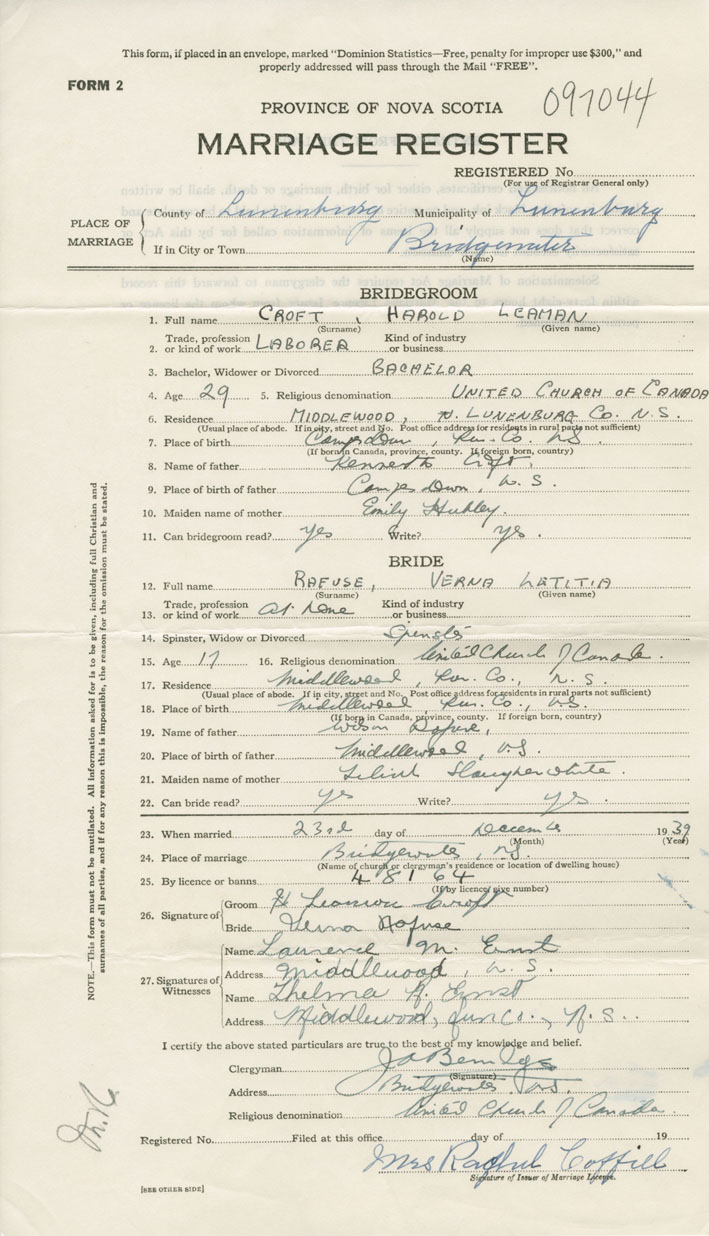 This form, if placed in an envelope, marked "Dominion Statistics—Free, penalty for improper use $300," and
properly addressed will pass through the Mail "FREE".
FORM 2
097044
PROVINCE OF NOVA SCOTIA
MARRIAGE REGISTER
REGISTERED No
(For use of Registrar General only)
PLACE OF MARRIAGE
County of Lunenburg Municipality of Lunenburg
If in City or Town Bridgewater
(Name)
BRIDEGROOM
1. Full name CROFT, HAROLD LEAMAN
(Surname) (Given name)
2. Trade, profession or kind of work LABORER Kind of industry or business
3. Bachelor, Widower or Divorced BACHELOR
4. Age 29 5. Religious denomination UNITED CHURCH OF CANADA
6. Residence MIDDLEWOOD, LUNENBURG CO. N.S.
(Usual place of abode. If in city, street and No. Post office address for residents in rural parts not sufficient)
7. Place of birth Camperdown, Lun. Co. N.S.
(If born in Canada, province, county. If foreign born, country)
8. Name of father Kenneth Croft.
9. Place of birth of father Camperdown, N.S.
10. Maiden name of mother Emily Hubley.
11. Can bridegroom read? yes Write? yes.
BRIDE
12. Full name RAFUSE, VERNA LETITIA
(Surname) (Given name)
13. Trade, profession or kind of work At Home Kind of industry or business
14. Spinster, Widow or Divorced Spinster
15. Age 17 16. Religious denomination United Church of Canada.
17. Residence Middlewood, Lun. Co., N.S.
(Usual place of abode. If in city, street and No. Post office address for residents in rural parts not sufficient)
18. Place of birth Middlewood Lun. Co., N.S.
(If born in Canada, province, county. If foreign born, country)
19. Name of father Wilson Rafuse,
20. Place of birth of father Middlewood, N.S.
21. Maiden name of mother Slaughenwhite.
22. Can bride read? yes Write? yes.
23. When married 23rd day of December 1939
(Month) (Year)
24. Place of marriage Bridgewater, N.S.
(Name of church or clergyman's residence or location of dwelling house)
25. By licence or banns 48164
(If by licence, give number)
26. Signature of
Groom H Leamon Croft
Bride Verna Rafuse
27. Signatures of Witnesses
Name Laurence M. Ernst
Address Middlewood, N.S.
Name Thelma R. Ernst
Address Middlewood, Lun Co., N.S.
I certify the above stated particulars are true to the best of my knowledge and belief.
Clergyman
(Signature)
Address Bridgewater N.S.
Religious denomination United Church of Canada.
Registered No. Filed at this office day of 19
Mrs Rachel Coffill
Signature of Issuer of Marriage License.
[SEE OTHER SIDE]
NOTE.—This form must not be mutilated. All information asked for is to be given, including full Christian and
surnames of all parties, and if for any reason this is impossible, the reason for the omission must be stated.